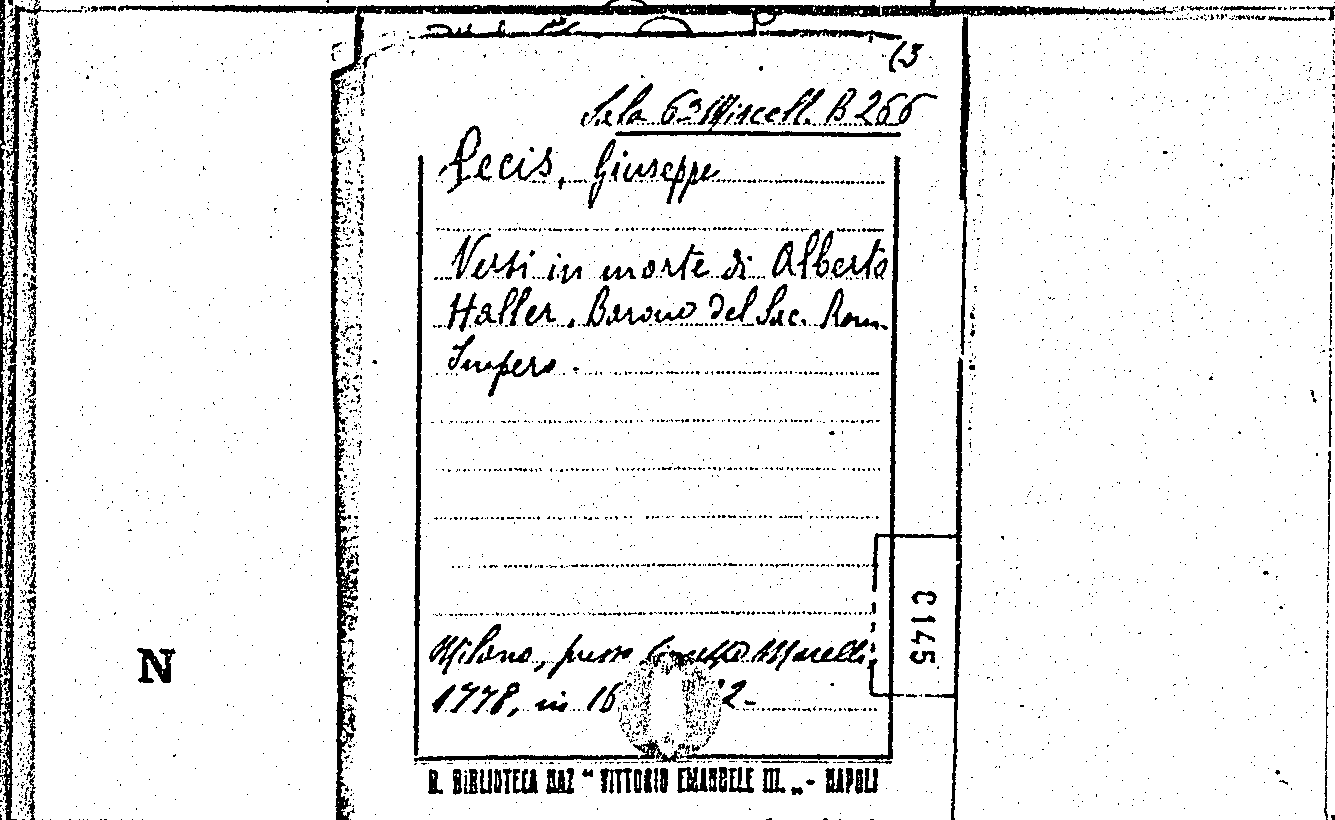 (3
Sala 6ª Miscell. B 266
Pecis, Giuseppe
Versi in morte di Alberto
Haller, Barone del Sac. Rom.
Impero.
C145
Milano, presso Marelli
N
1778, in 16 2-
R. BIBLIOTECA NAZ " VITTORIO EMANUELE III. „ - NAPOLI